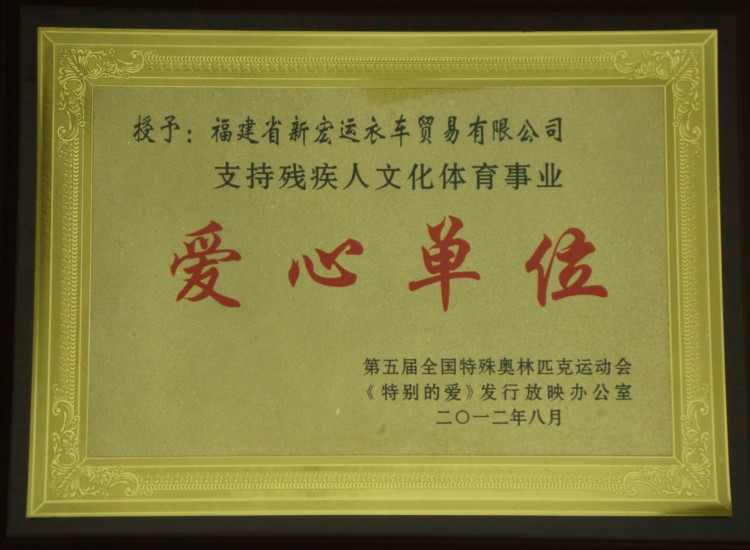 授予：福建省新宏运衣车贸易有限公司
支持残疾人文化体育事业
爱心单位
第五届全国特殊奥林匹克运动会
《特别的爱》发行放映办公室
二〇一二年八月